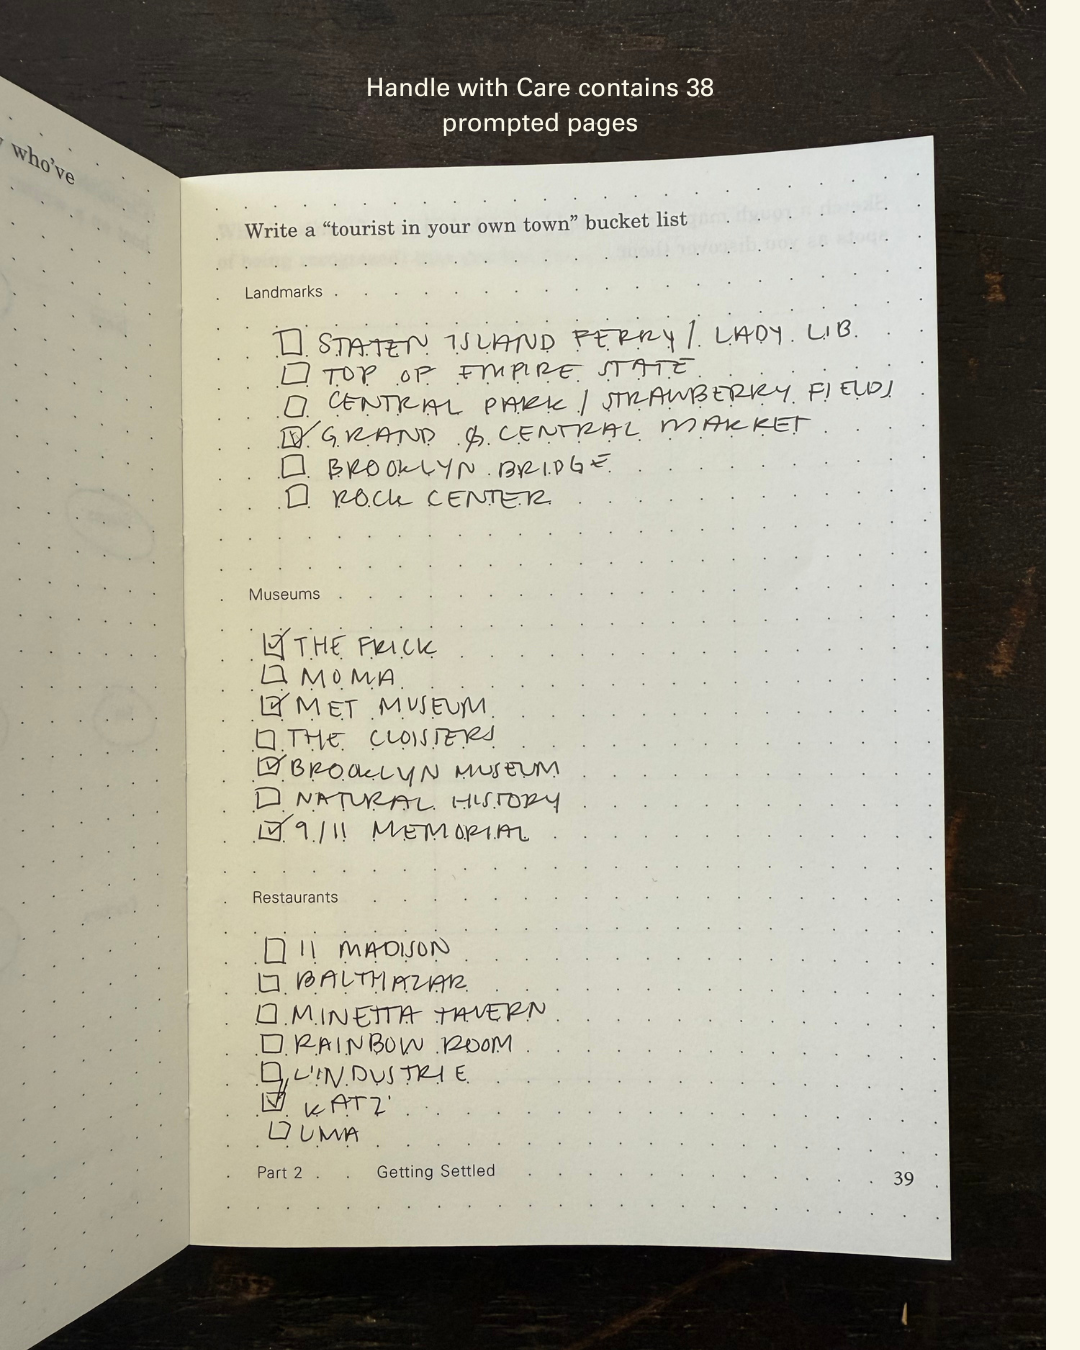 Handle with Care contains 38
prompted pages
who've
Write a “tourist in your own town” bucket list
Landmarks
STATEN ISLAND FERRY / LADY LIB.
TOP OF EMPIRE STATE
CENTRAL PARK / STRAWBERRY FIELDS
GRAND & CENTRAL MARKET
BROOKLYN BRIDGE
ROCK CENTER
Museums
THE FRICK
MOMA
MET MUSEUM
THE CLOISTERS
BROOKLYN MUSEUM
NATURAL HISTORY
9/11 MEMORIAL
Restaurants
11 MADISON
BALTHAZAR
MINETTA TAVERN
RAINBOW ROOM
L'INDUSTRIE
KATZ'
UMA
Part 2 Getting Settled
39